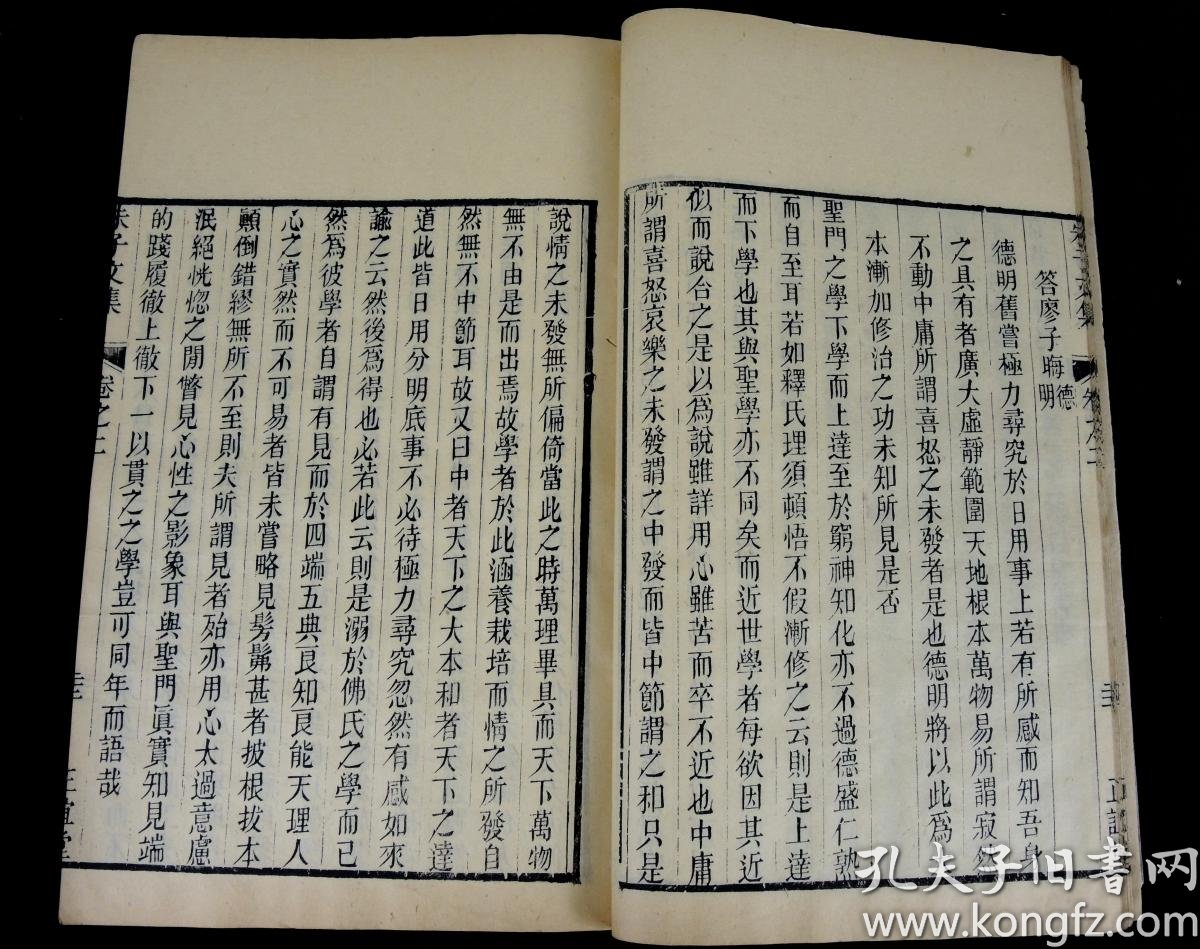 答廖子晦德明
德明舊嘗極力尋究於日用事上若有所感而知吾身
之具有者廣大虛靜範圍天地根本萬物易所謂寂然
不動中庸所謂喜怒之未發者是也德明將以此為
本漸加修治之功未知所見是否
聖門之學下學而上達至於窮神知化亦不過德盛仁熟
而自至耳若如釋氏理須頓悟不假漸修之云則是上達
而下學也其與聖學亦不同矣而近世學者每欲因其近
似而說合之是以為說雖詳用心雖苦而卒不近也中庸
所謂喜怒哀樂之未發謂之中發而皆中節謂之和只是
說情之未發無所偏倚當此之時萬理畢具而天下萬物
無不由是而出焉故學者於此涵養栽培而情之所發自
然無不中節耳故又曰中者天下之大本和者天下之達
道此皆日用分明底事不必待極力尋究忽然有感如來
諭之云然後為得也必若此云則是溺於佛氏之學而已
然為彼學者自謂有見而於四端五典良知良能天理人
心之實然而不可易者皆未嘗略見髣髴甚者披根拔本
顛倒錯繆無所不至則夫所謂見者殆亦用心太過意慮
泯絕恍惚之閒瞥見心性之影象耳與聖門眞實知見端
的踐履徹上徹下一以貫之之學豈可同年而語哉
朱子文集 卷之二 正誼堂
孔夫子旧书网
www.kongfz.com